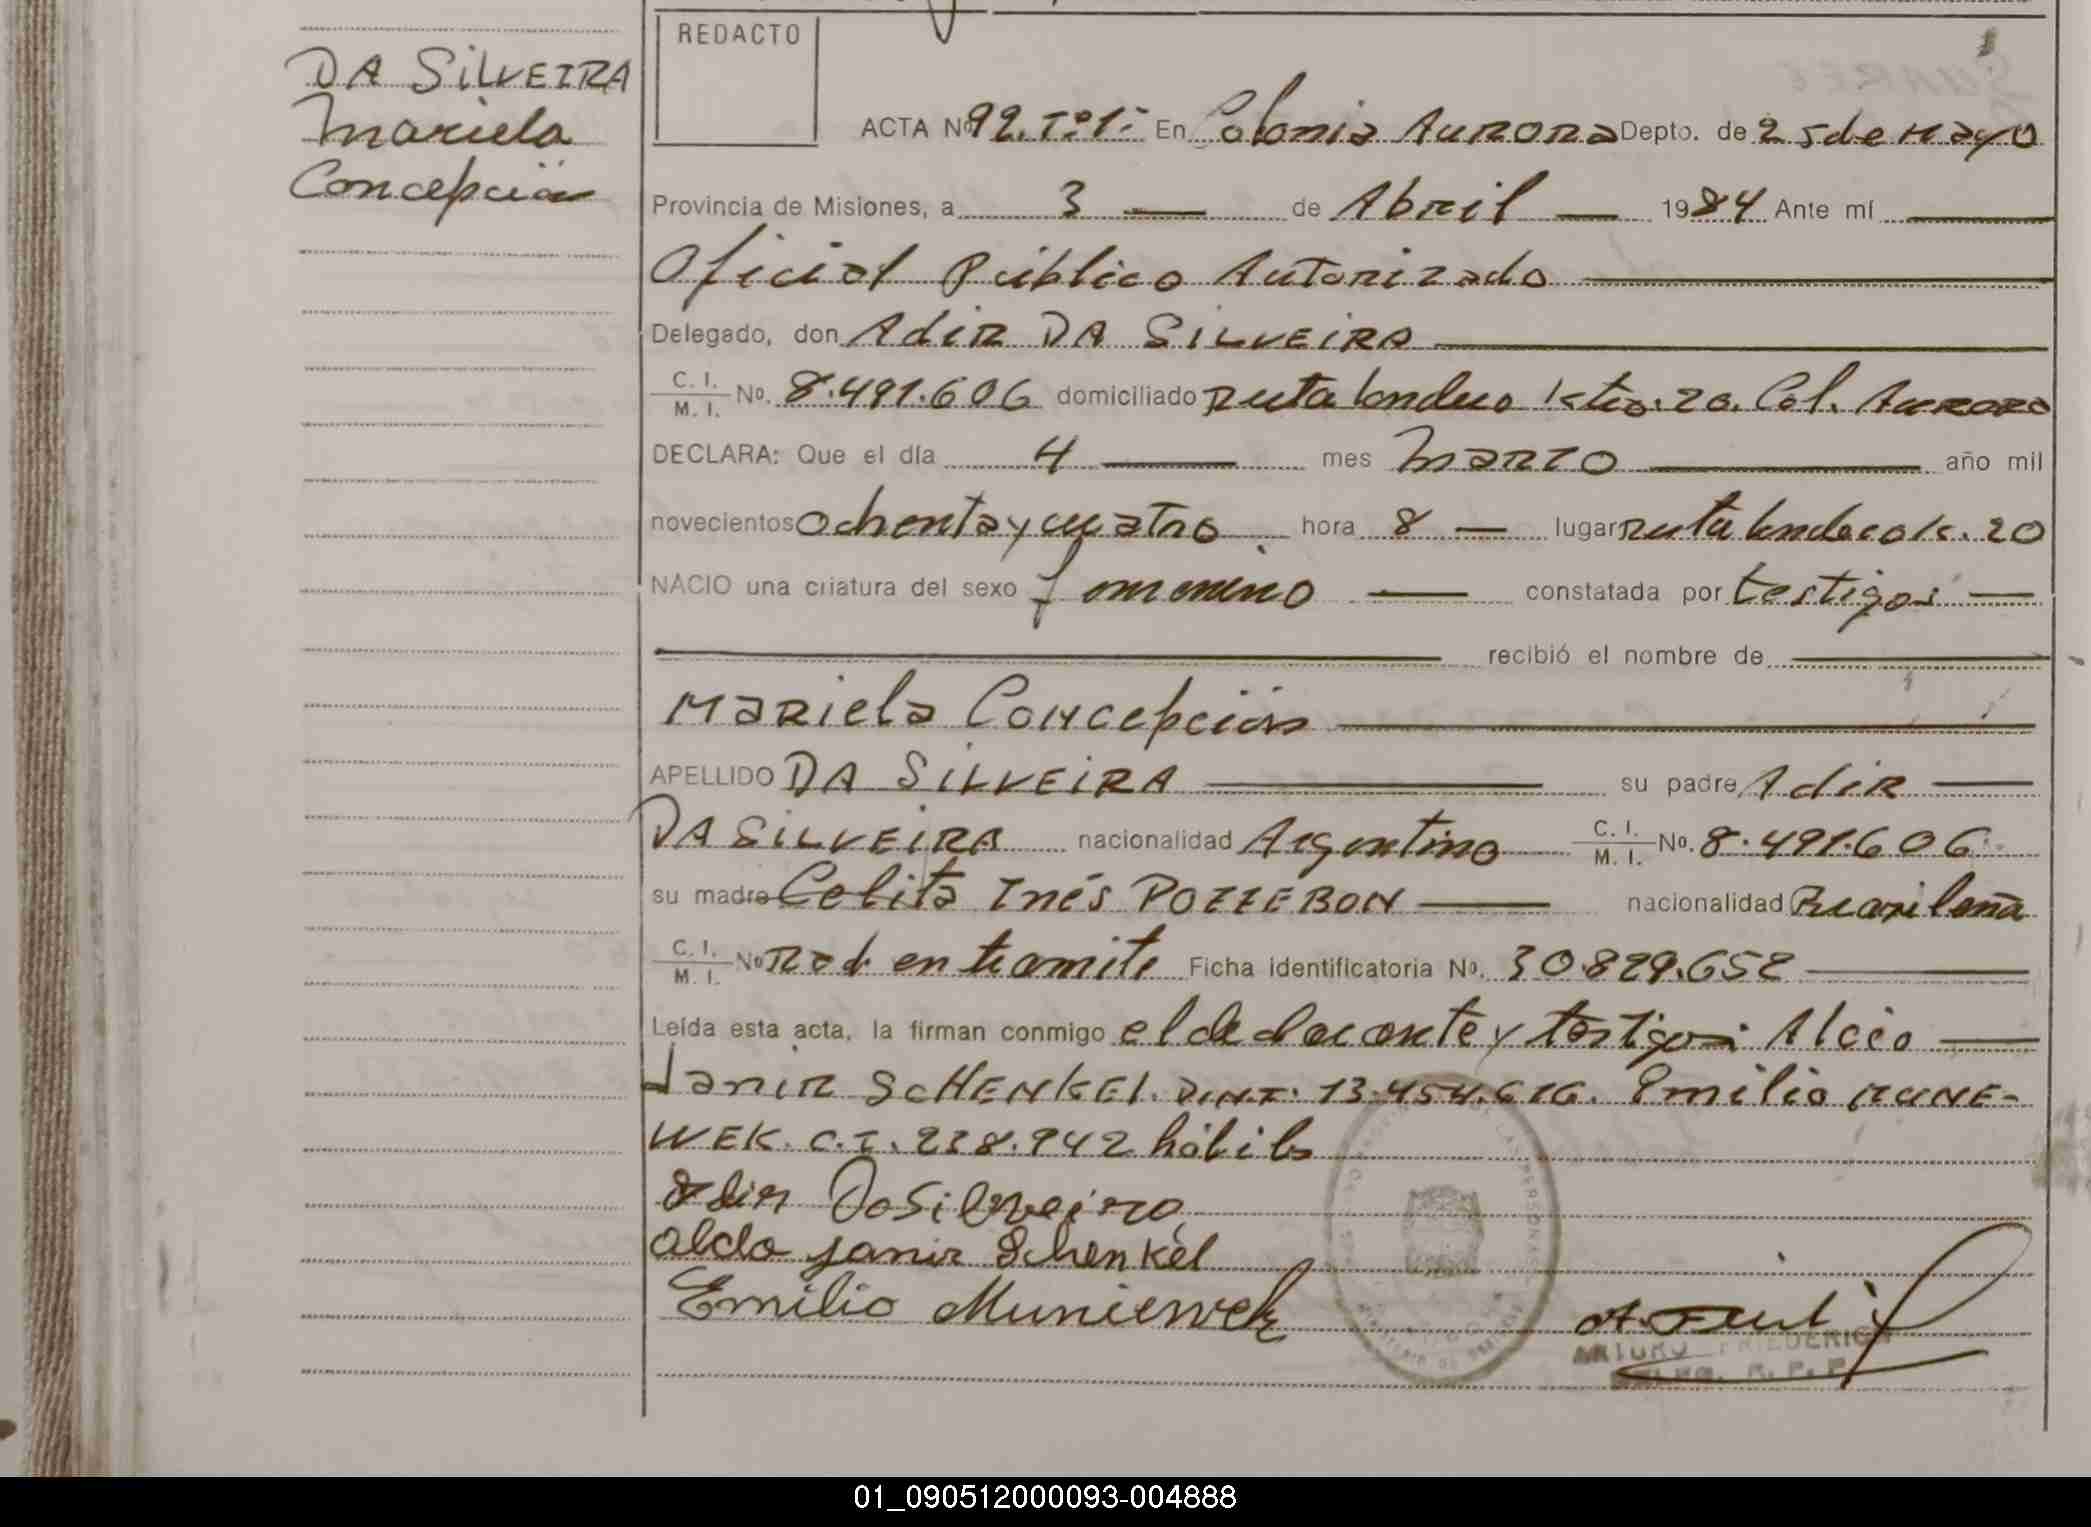 DA SILVEIRA
Mariela
Concepción
REDACTO
ACTA Nº 92. Tº1: En Colonia Aurora Depto. de 25 de Mayo
Provincia de Misiones, a 3 — de Abril — 1984 Ante mí —
Oficial Público Autorizado —
Delegado, don Adir DA SILVEIRA —
C. I. / M. I. Nº. 8.491.606 domiciliado Ruta Costera Kto. 20. Col. Aurora
DECLARA: Que el día 4 — mes Marzo — año mil
novecientos ochenta y cuatro hora 8 — lugar ruta K. 20
NACIO una criatura del sexo femenino — constatada por testigos —
— recibió el nombre de —
Mariela Concepción —
APELLIDO DA SILVEIRA — su padre Adir —
DA SILVEIRA nacionalidad Argentino C. I. / M. I. Nº. 8.491.606
su madre Celita Inés POZZEBON — nacionalidad Brasileña
C. I. / M. I. Nº Rad. en tramite Ficha identificatoria Nº. 30.829.652 —
Leída esta acta, la firman conmigo el declarante y testigos: —
Janir SCHENKEL. D.N.I. 13.454.616. Emilio MUNE-
WEK. C.I. 238.942 hábiles
Adir Da Silveira
Aldo Janir Schenkel
Emilio Muniewek
ARTURO FRIEDERICH
R. P. P.
01_090512000093-004888